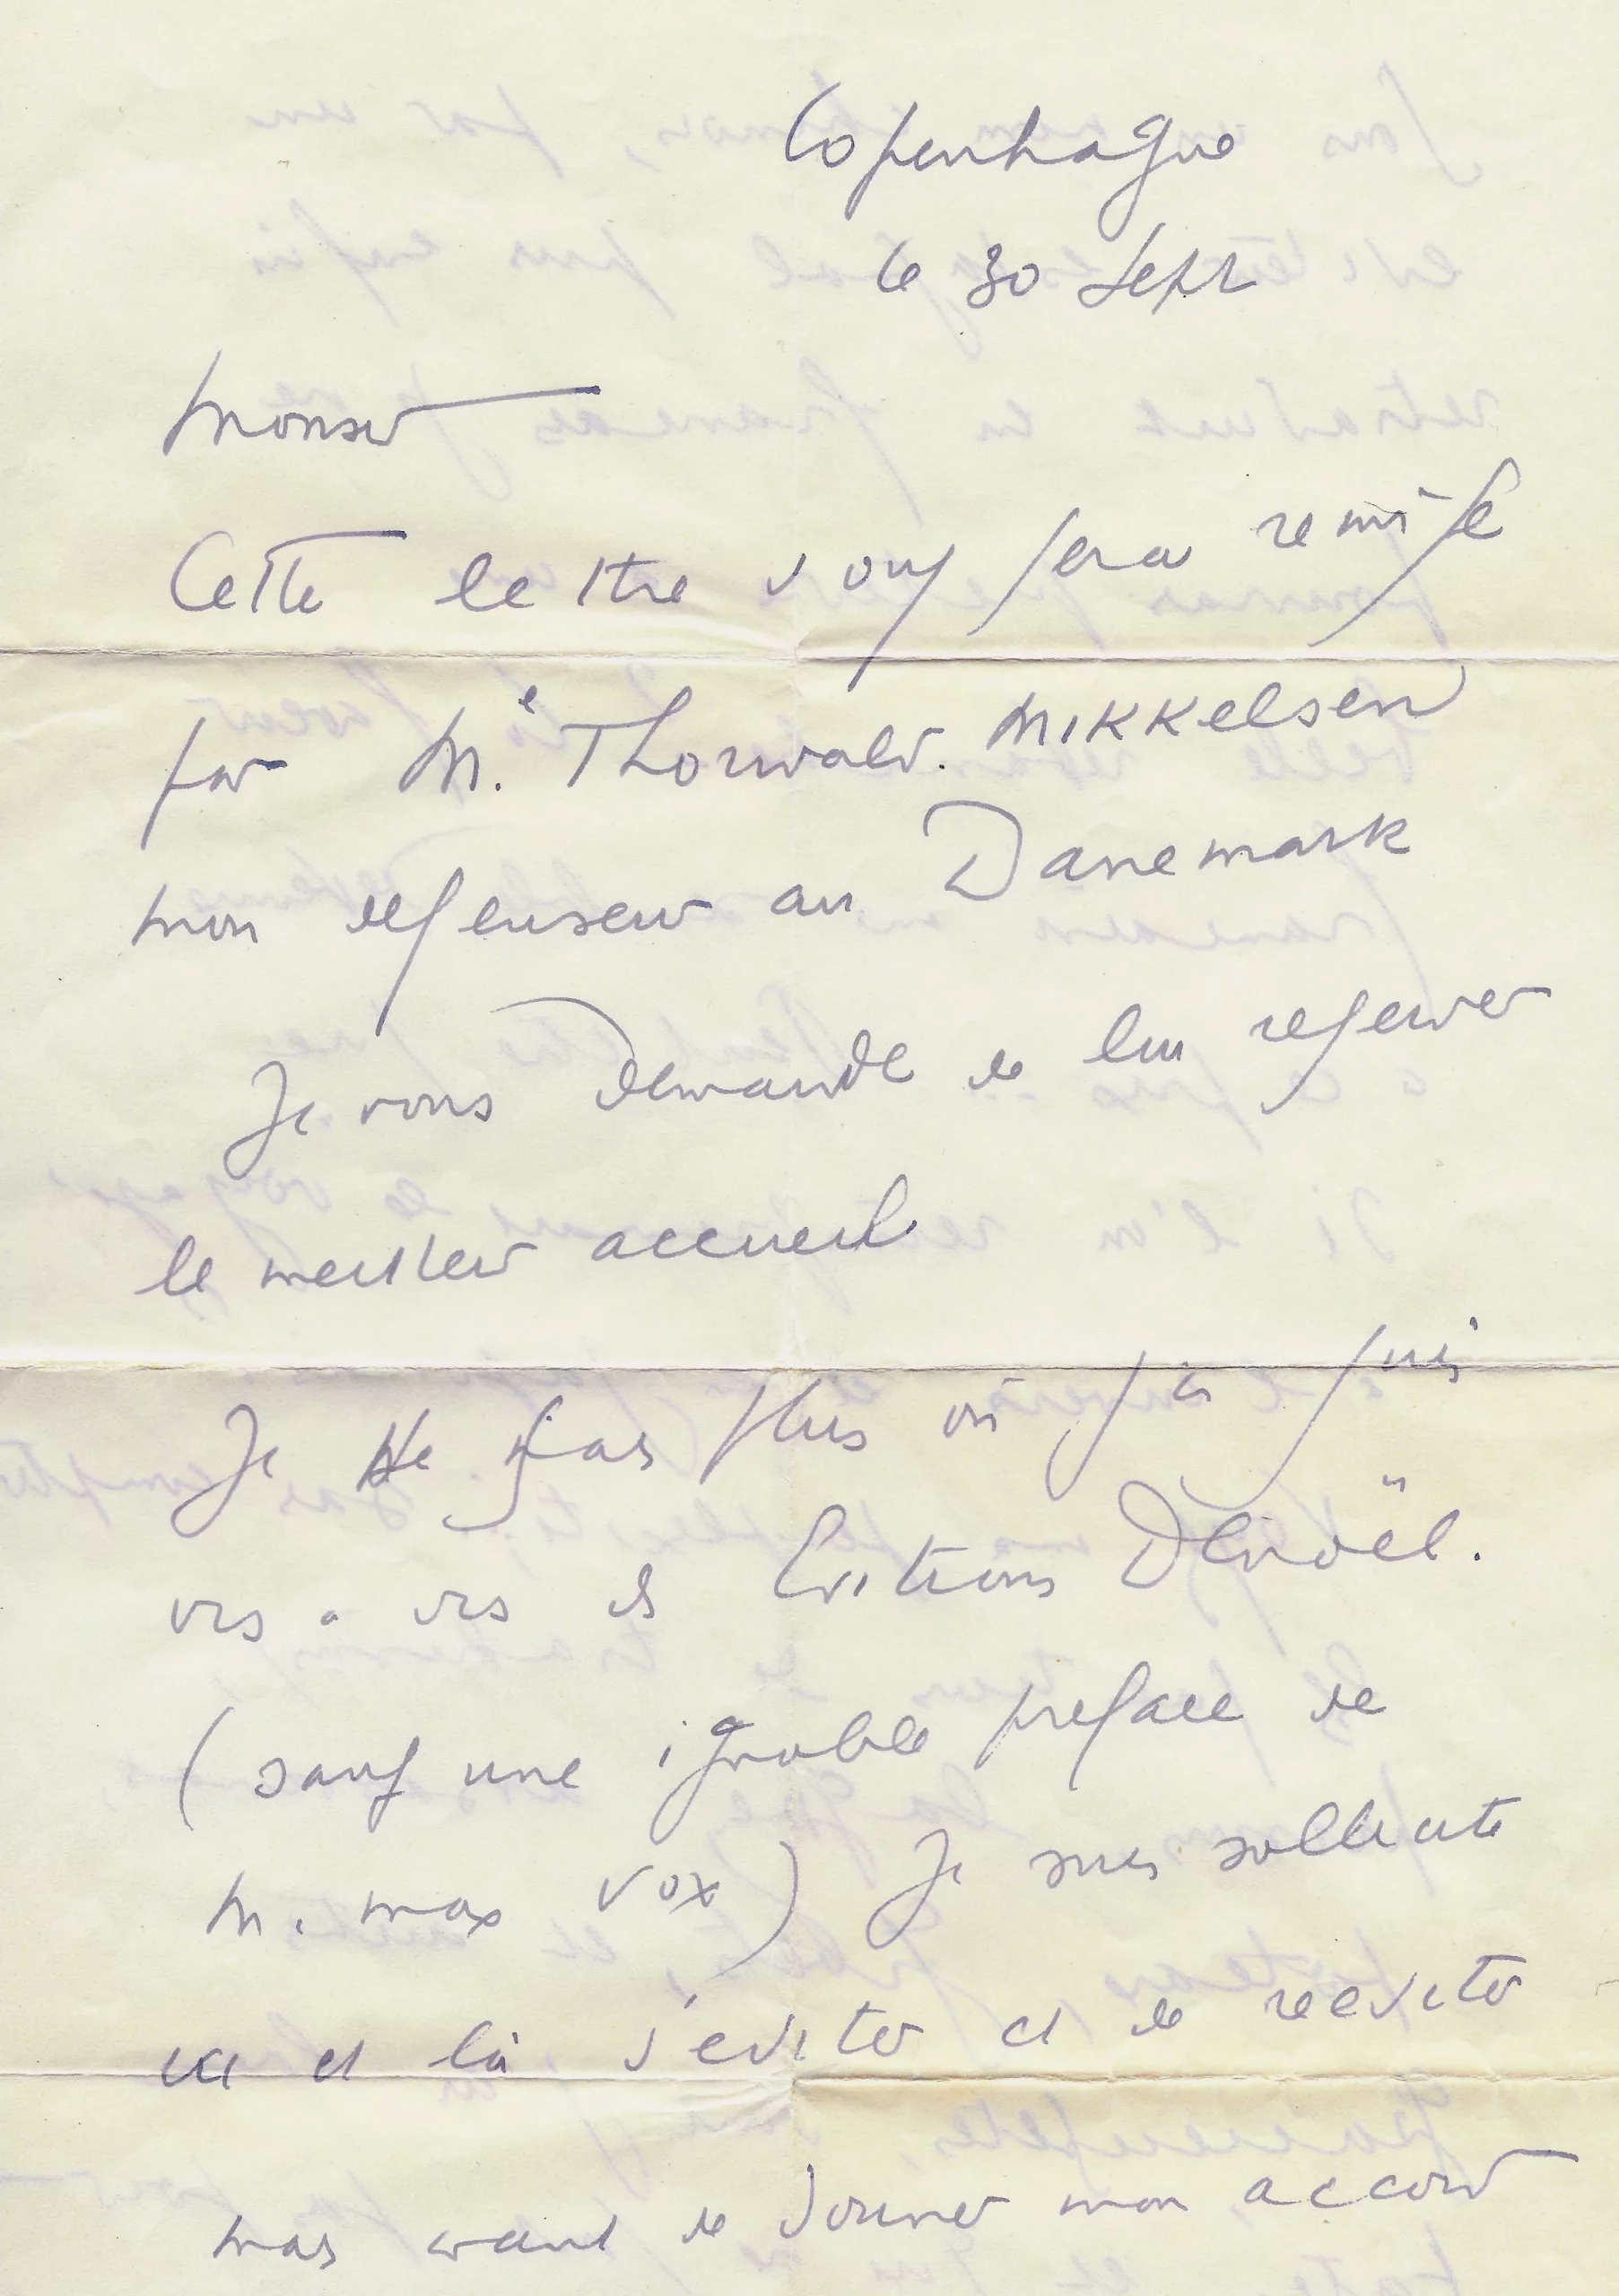 Copenhague
le 30 Sept
Monsieur
Cette lettre vous sera remise
par Me. Thorwald. MIKKelsen
mon defenseur au Danemark
Je vous demande de lui reserver
le meilleur accueil
Je ne sais plus où j'en suis
vis a vis des Editions Denoël.
(sauf une ignoble preface de
M. max Vox) Je suis sollicité
ici et là d'editer et de reediter
mais avant de donner mon accord